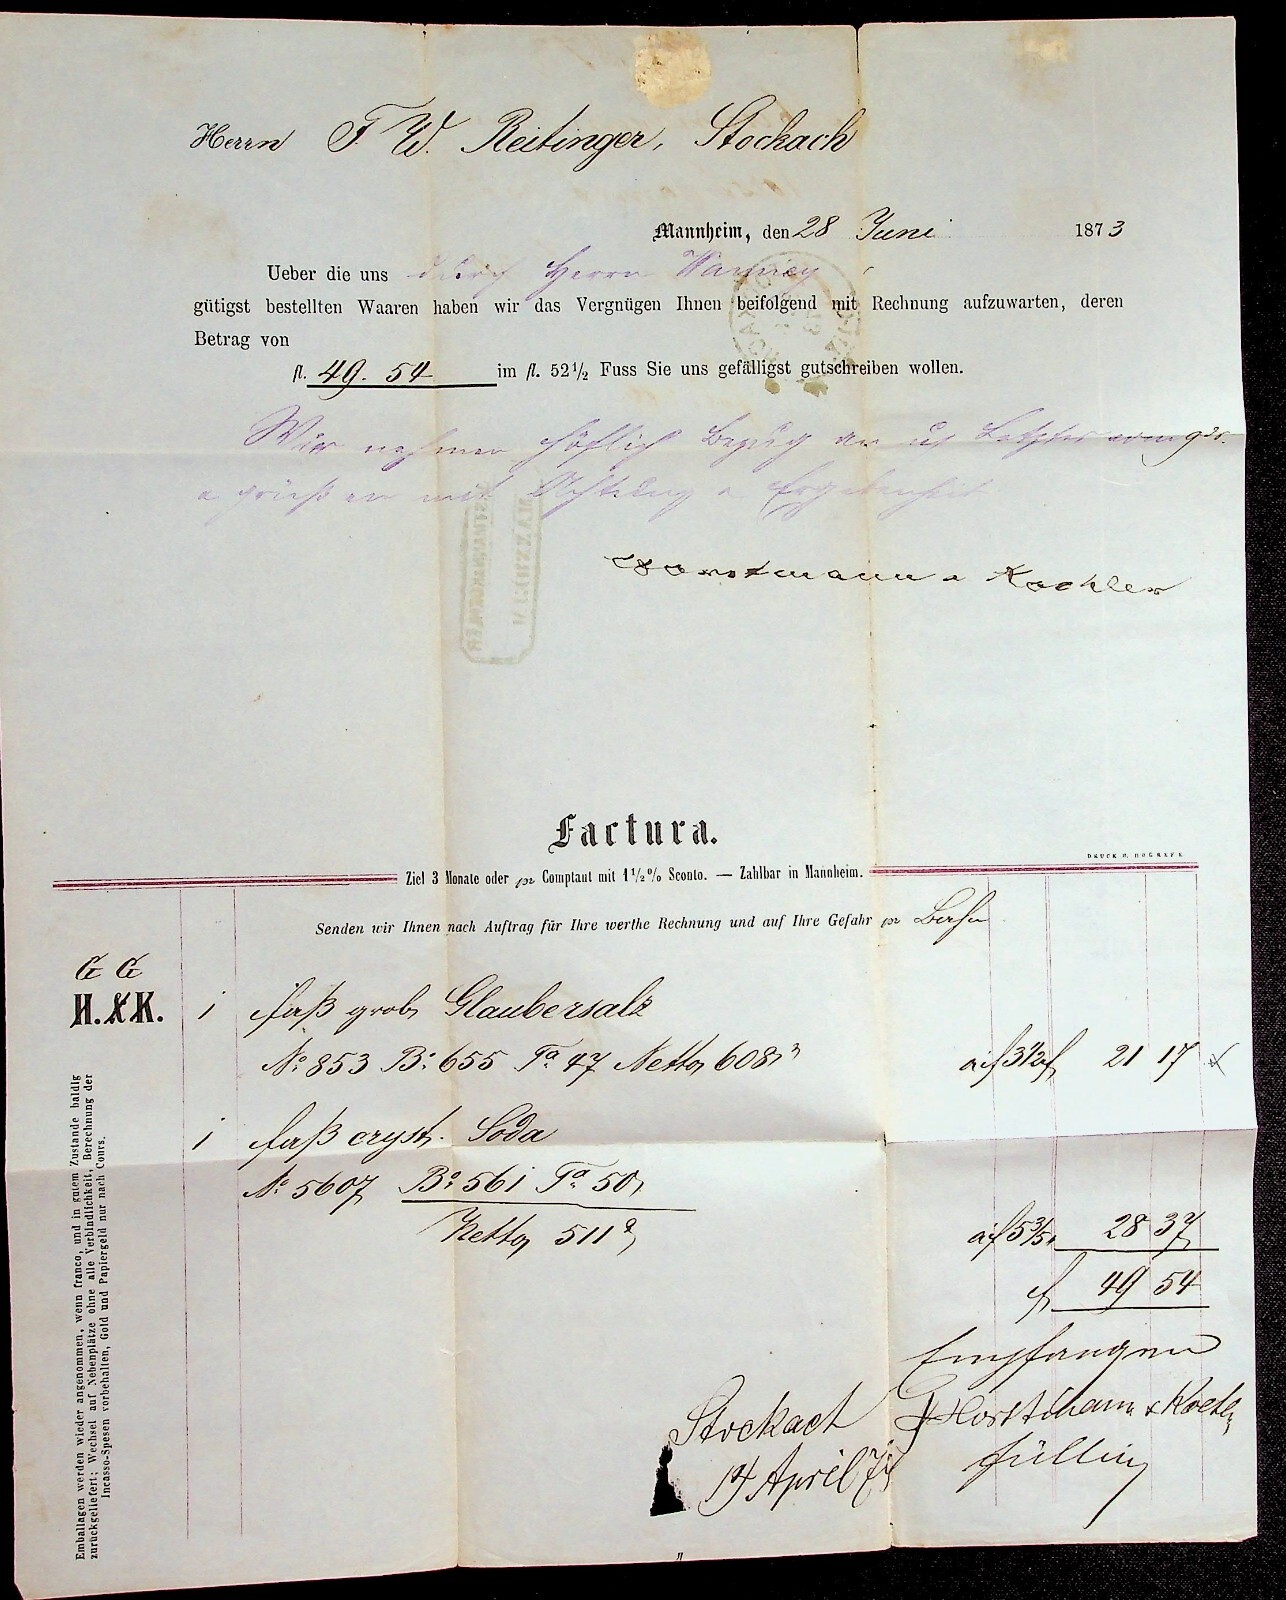 Herrn F. W. Reitinger, Stockach
Mannheim, den 28 Juni 1873
Ueber die uns durch Herrn
gütigst bestellten Waaren haben wir das Vergnügen Ihnen beifolgend mit Rechnung aufzuwarten, deren
Betrag von
fl. 49. 54 im fl. 52 1/2 Fuss Sie uns gefälligst gutschreiben wollen.
Wir nehmen höflich Bezug an
mit Achtung & Ergebenheit
Horstmann & Koehler
HORSTMANN & KOEHLER
MANNHEIM
Factura.
DRUCK v. HOGREFE
Ziel 3 Monate oder pr Comptant mit 1 1/2 % Sconto. — Zahlbar in Mannheim.
Senden wir Ihnen nach Auftrag für Ihre werthe Rechnung und auf Ihre Gefahr pr Bahn
G G
H. & K.
1 Faß grob Glaubersalz
No 853 Bo 655 Ta 47 Netto 608 a f 3 1/2 21 17
1 Faß cryst. Soda
No 5607 Bo 561 Ta 50
Netto 511 a f 5 3/5 28 37
f 49 54
Empfangen
Stockach Horstmann & Koehler
14 April 74
Emballagen werden wieder angenommen, wenn franco, und in gutem Zustande baldig
zurückgeliefert; Wechsel auf Nebenplätze ohne alle Verbindlichkeit, Berechnung der
Incasso-Spesen vorbehalten, Gold und Papiergeld nur nach Cours.